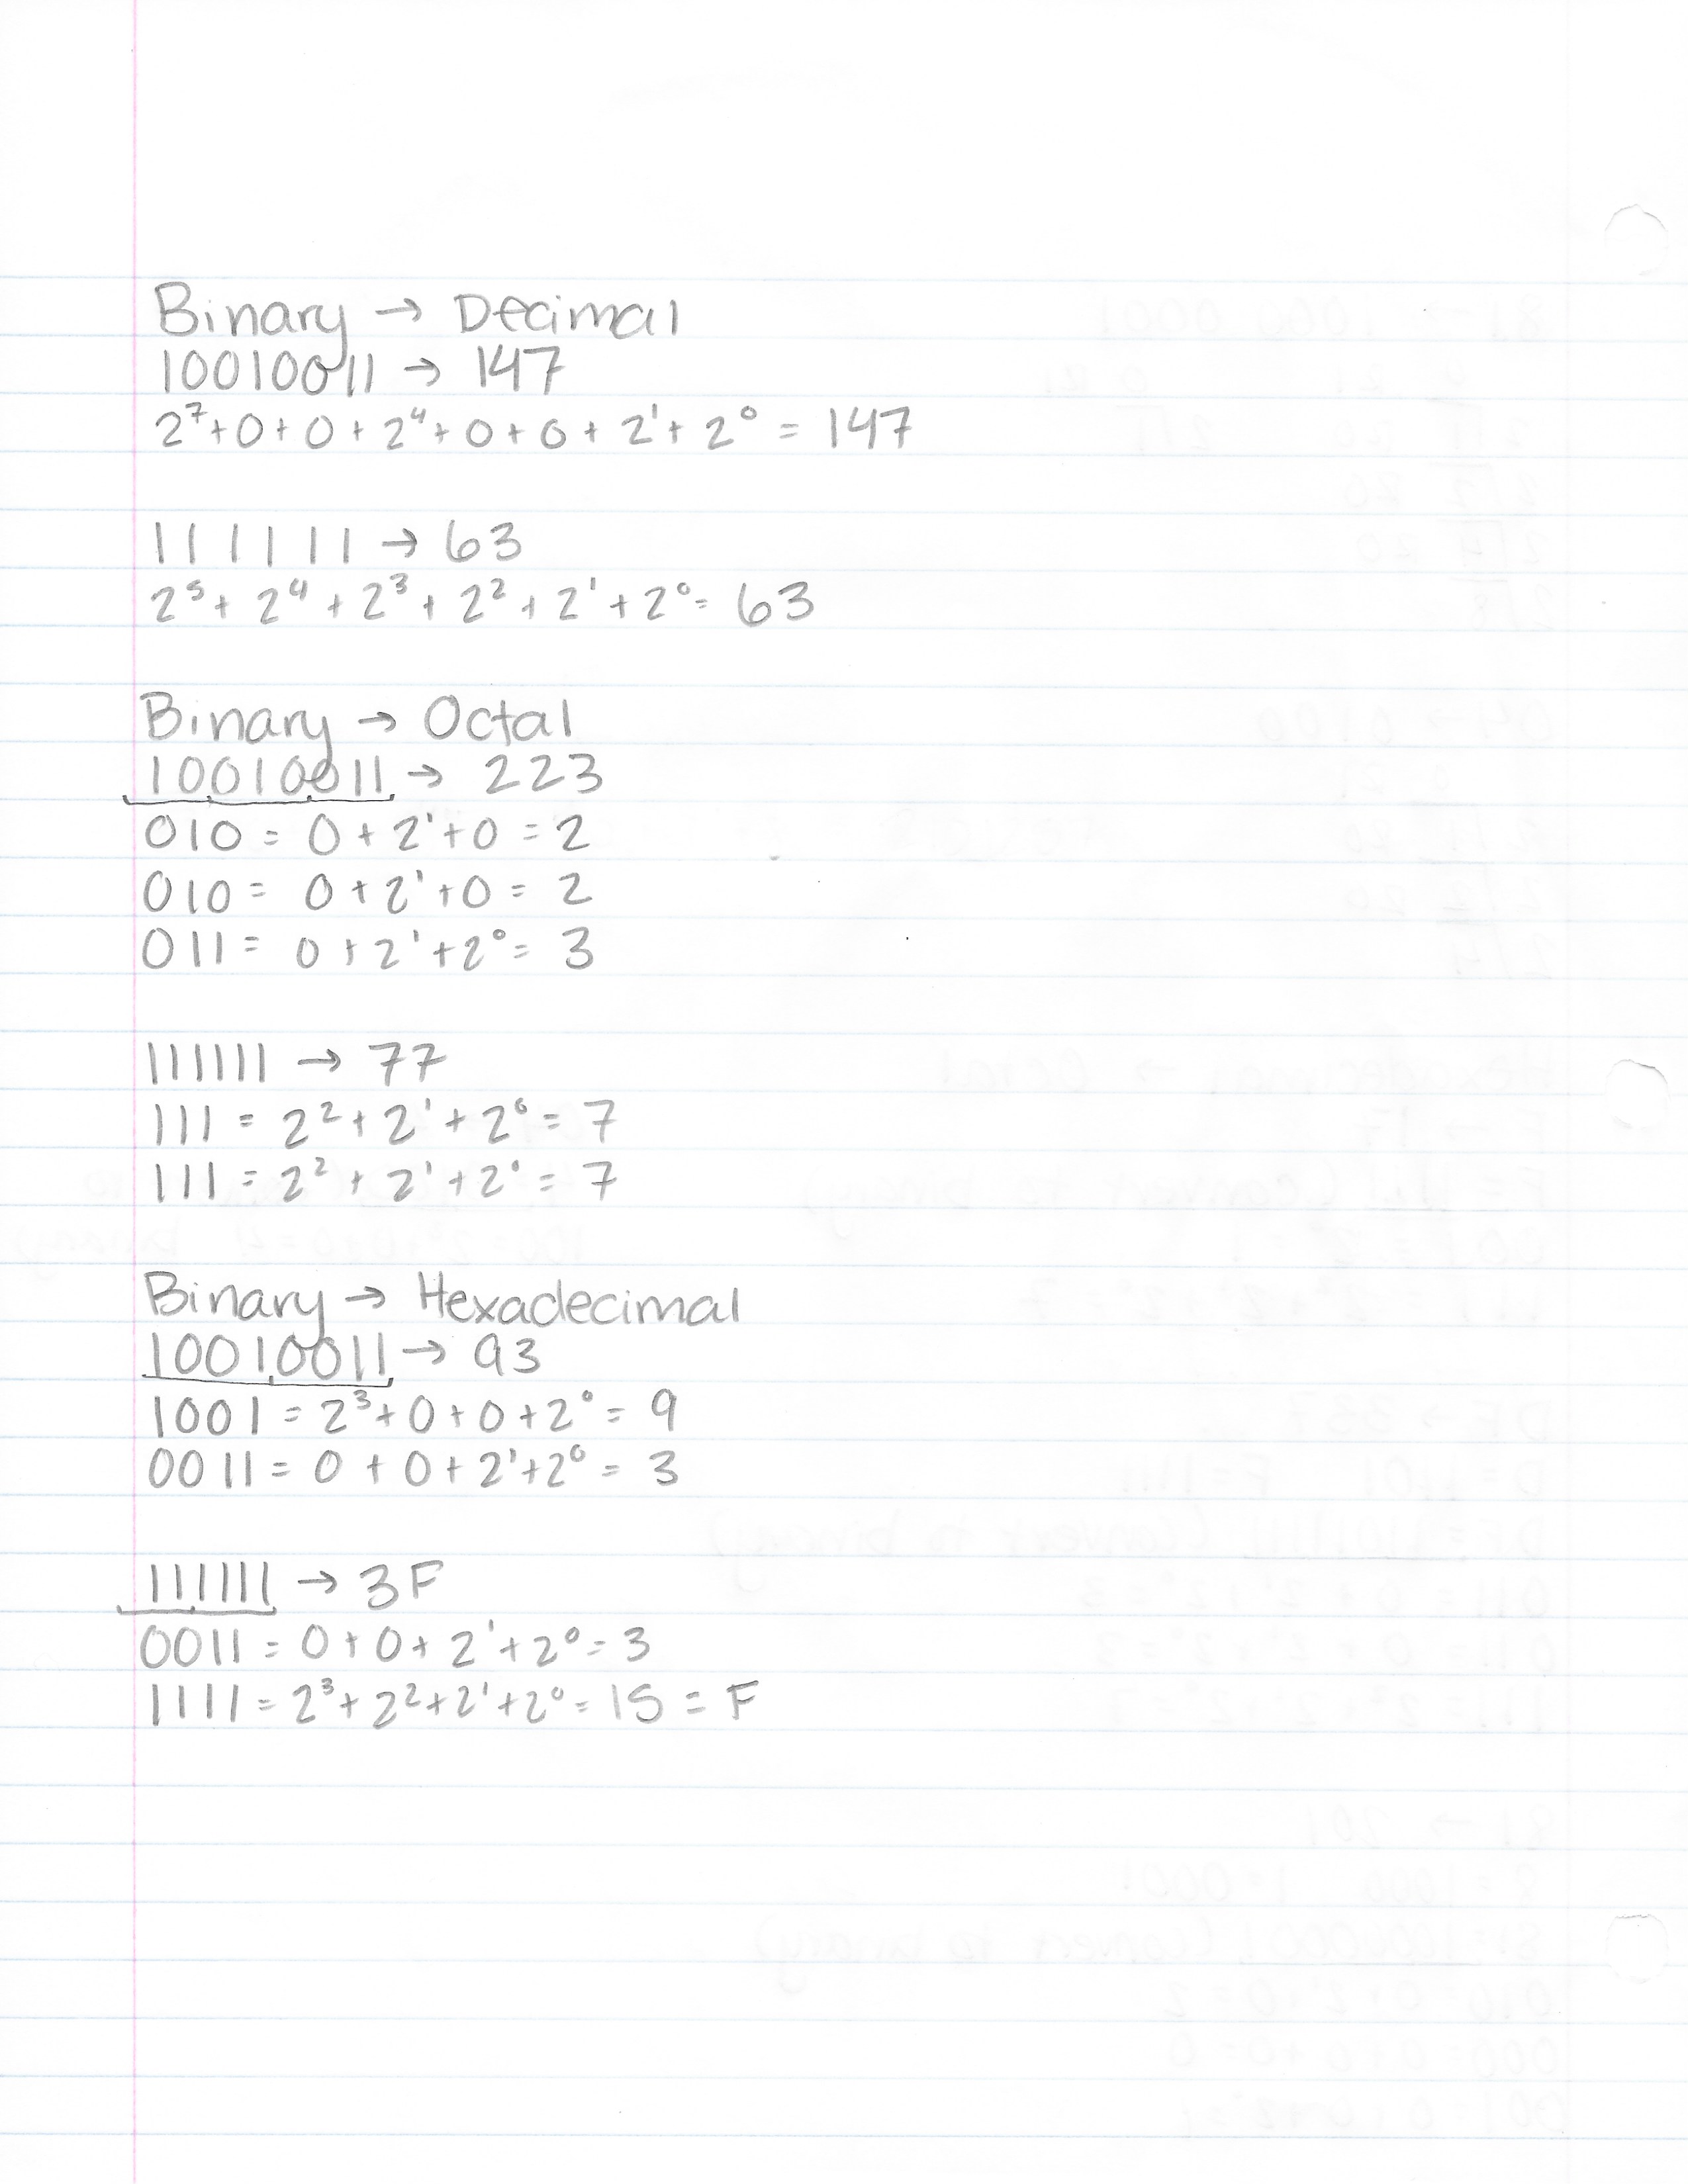 Binary → Decimal
10010011 → 147
2⁷+0+0+2⁴+0+0+2¹+2⁰ = 147
111111 → 63
2⁵+2⁴+2³+2²+2¹+2⁰= 63
Binary → Octal
10010011 → 223
010 = 0+2¹+0 = 2
010 = 0+2¹+0 = 2
011 = 0+2¹+2⁰= 3
111111 → 77
111 = 2²+2¹+2⁰= 7
111 = 2²+2¹+2⁰= 7
Binary → Hexadecimal
10010011 → 93
1001 = 2³+0+0+2⁰= 9
0011 = 0+0+2¹+2⁰ = 3
111111 → 3F
0011 = 0+0+2¹+2⁰= 3
1111 = 2³+2²+2¹+2⁰= 15 = F